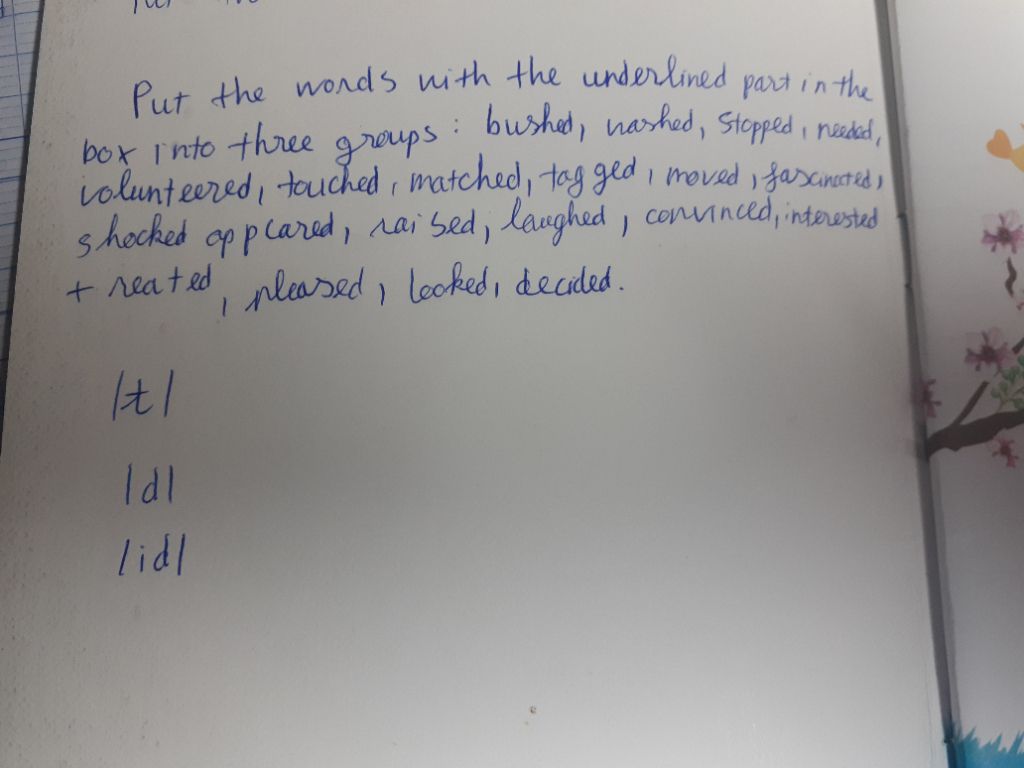 Put the words with the underlined part in the
box into three groups: bushed, washed, stopped, needed,
volunteered, touched, matched, tagged, moved, fascinated,
shocked appeared, raised, laughed, convinced, interested
treated, pleased, looked, decided.
/t/
/d/
/id/